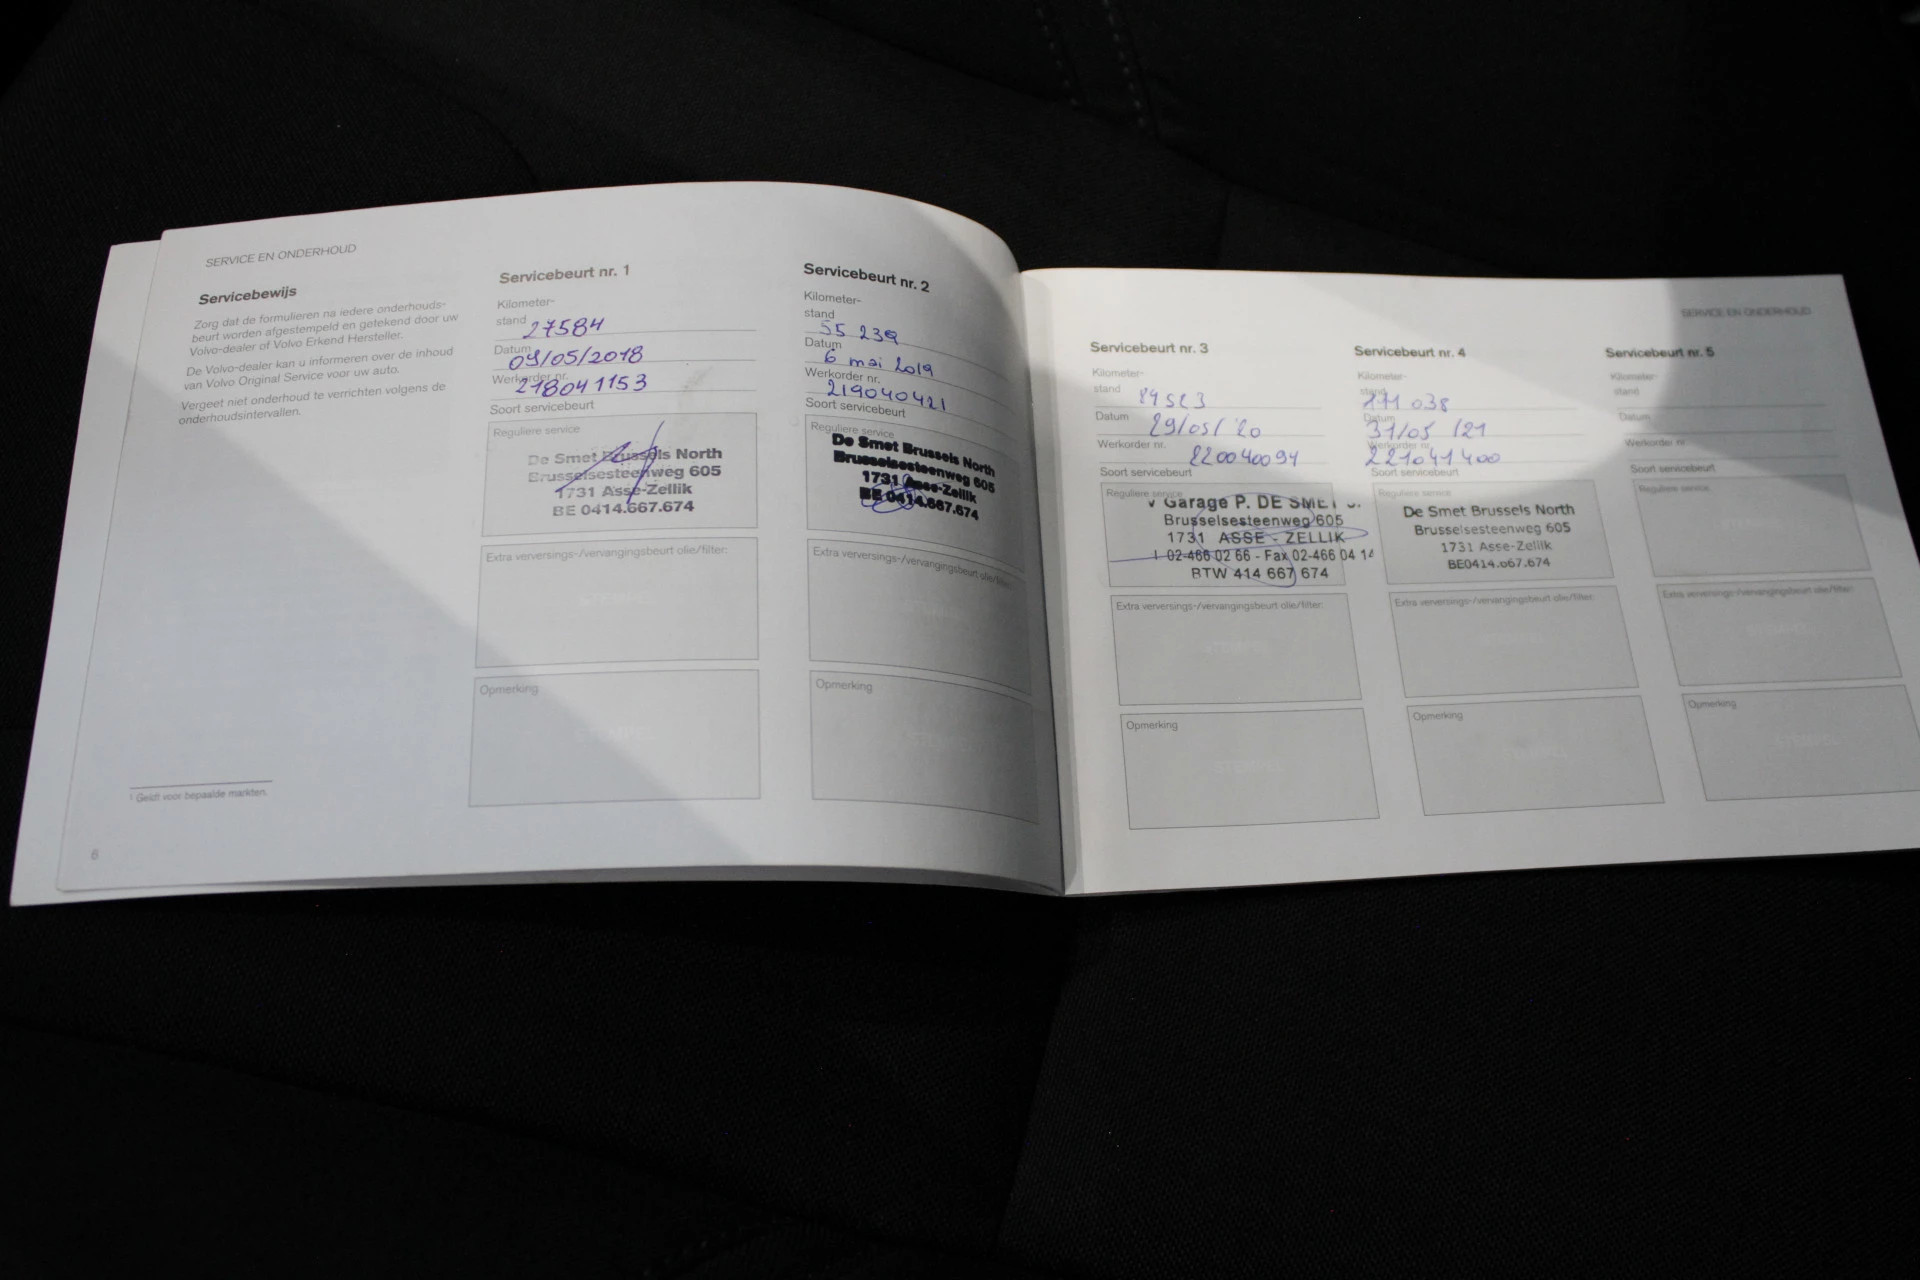 SERVICE EN ONDERHOUD
Servicebewijs
Zorg dat de formulieren na iedere onderhouds-
beurt worden afgestempeld en getekend door uw
Volvo-dealer of Volvo Erkend Hersteller.
De Volvo-dealer kan u informeren over de inhoud
van Volvo Original Service voor uw auto.
Vergeet niet onderhoud te verrichten volgens de
onderhoudsintervallen.
¹ Geldt voor bepaalde markten.
6
Servicebeurt nr. 1
Kilometer-
stand 27584
Datum 09/05/2018
Werkorder nr. 218041153
Soort servicebeurt
Reguliere service
De Smet Brussels North
Brusselsesteenweg 605
1731 Asse-Zellik
BE 0414.667.674
Extra verversings-/vervangingsbeurt olie/filter:
STEMPEL
Opmerking
STEMPEL
Servicebeurt nr. 2
Kilometer-
stand
55 239
Datum
6 mai 2019
Werkorder nr.
219040421
Soort servicebeurt
Reguliere service
De Smet Brussels North
Brusselsesteenweg 605
1731 Asse-Zellik
BE 0414.667.674
Extra verversings-/vervangingsbeurt olie/filter:
STEMPEL
Opmerking
STEMPEL
SERVICE EN ONDERHOUD
Servicebeurt nr. 3
Kilometer-
stand
Datum 29/05/'20
Werkorder nr. 220040094
Soort servicebeurt
Reguliere service
Garage P. DE SMET
Brusselsesteenweg 605
1731 ASSE - ZELLIK
02-466 02 66 - Fax 02-466 04 14
BTW 414 667 674
Extra verversings-/vervangingsbeurt olie/filter:
STEMPEL
Opmerking
STEMPEL
Servicebeurt nr. 4
Kilometer-
stand 111 038
Datum
31/05 /21
Werkorder nr.
221041400
Soort servicebeurt
Reguliere service
De Smet Brussels North
Brusselsesteenweg 605
1731 Asse-Zellik
BE0414.667.674
Extra verversings-/vervangingsbeurt olie/filter:
Opmerking
STEMPEL
Servicebeurt nr. 5
Kilometer-
stand
Datum
Werkorder nr.
Soort servicebeurt
Reguliere service
Extra verversings-/vervangingsbeurt olie/filter:
STEMPEL
Opmerking
STEMPEL